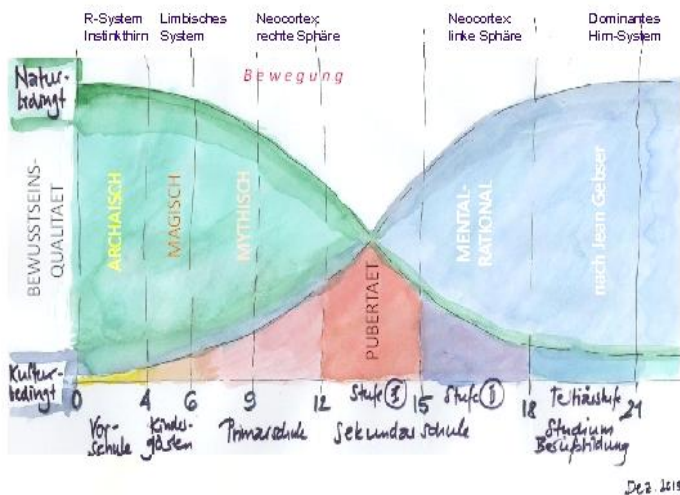 R-System
Instinkthirn
Limbisches
System
Neocortex
rechte Sphäre
Neocortex
linke Sphäre
Dominantes
Hirn-System
Bewegung
Natur-
bedingt
BEWUSSTSEINS-
QUALITAET
ARCHAISCH
MAGISCH
MYTHISCH
PUBERTAET
MENTAL-
RATIONAL
nach Jean Gebser
Kultur-
bedingt
0
4
6
9
12
Stufe I
15
Stufe II
18
Tertiärstufe
21
Vor-
schule
Kinder-
gärten
Primarschule
Sekundarschule
Studium
Berufsbildung
Dez. 2019